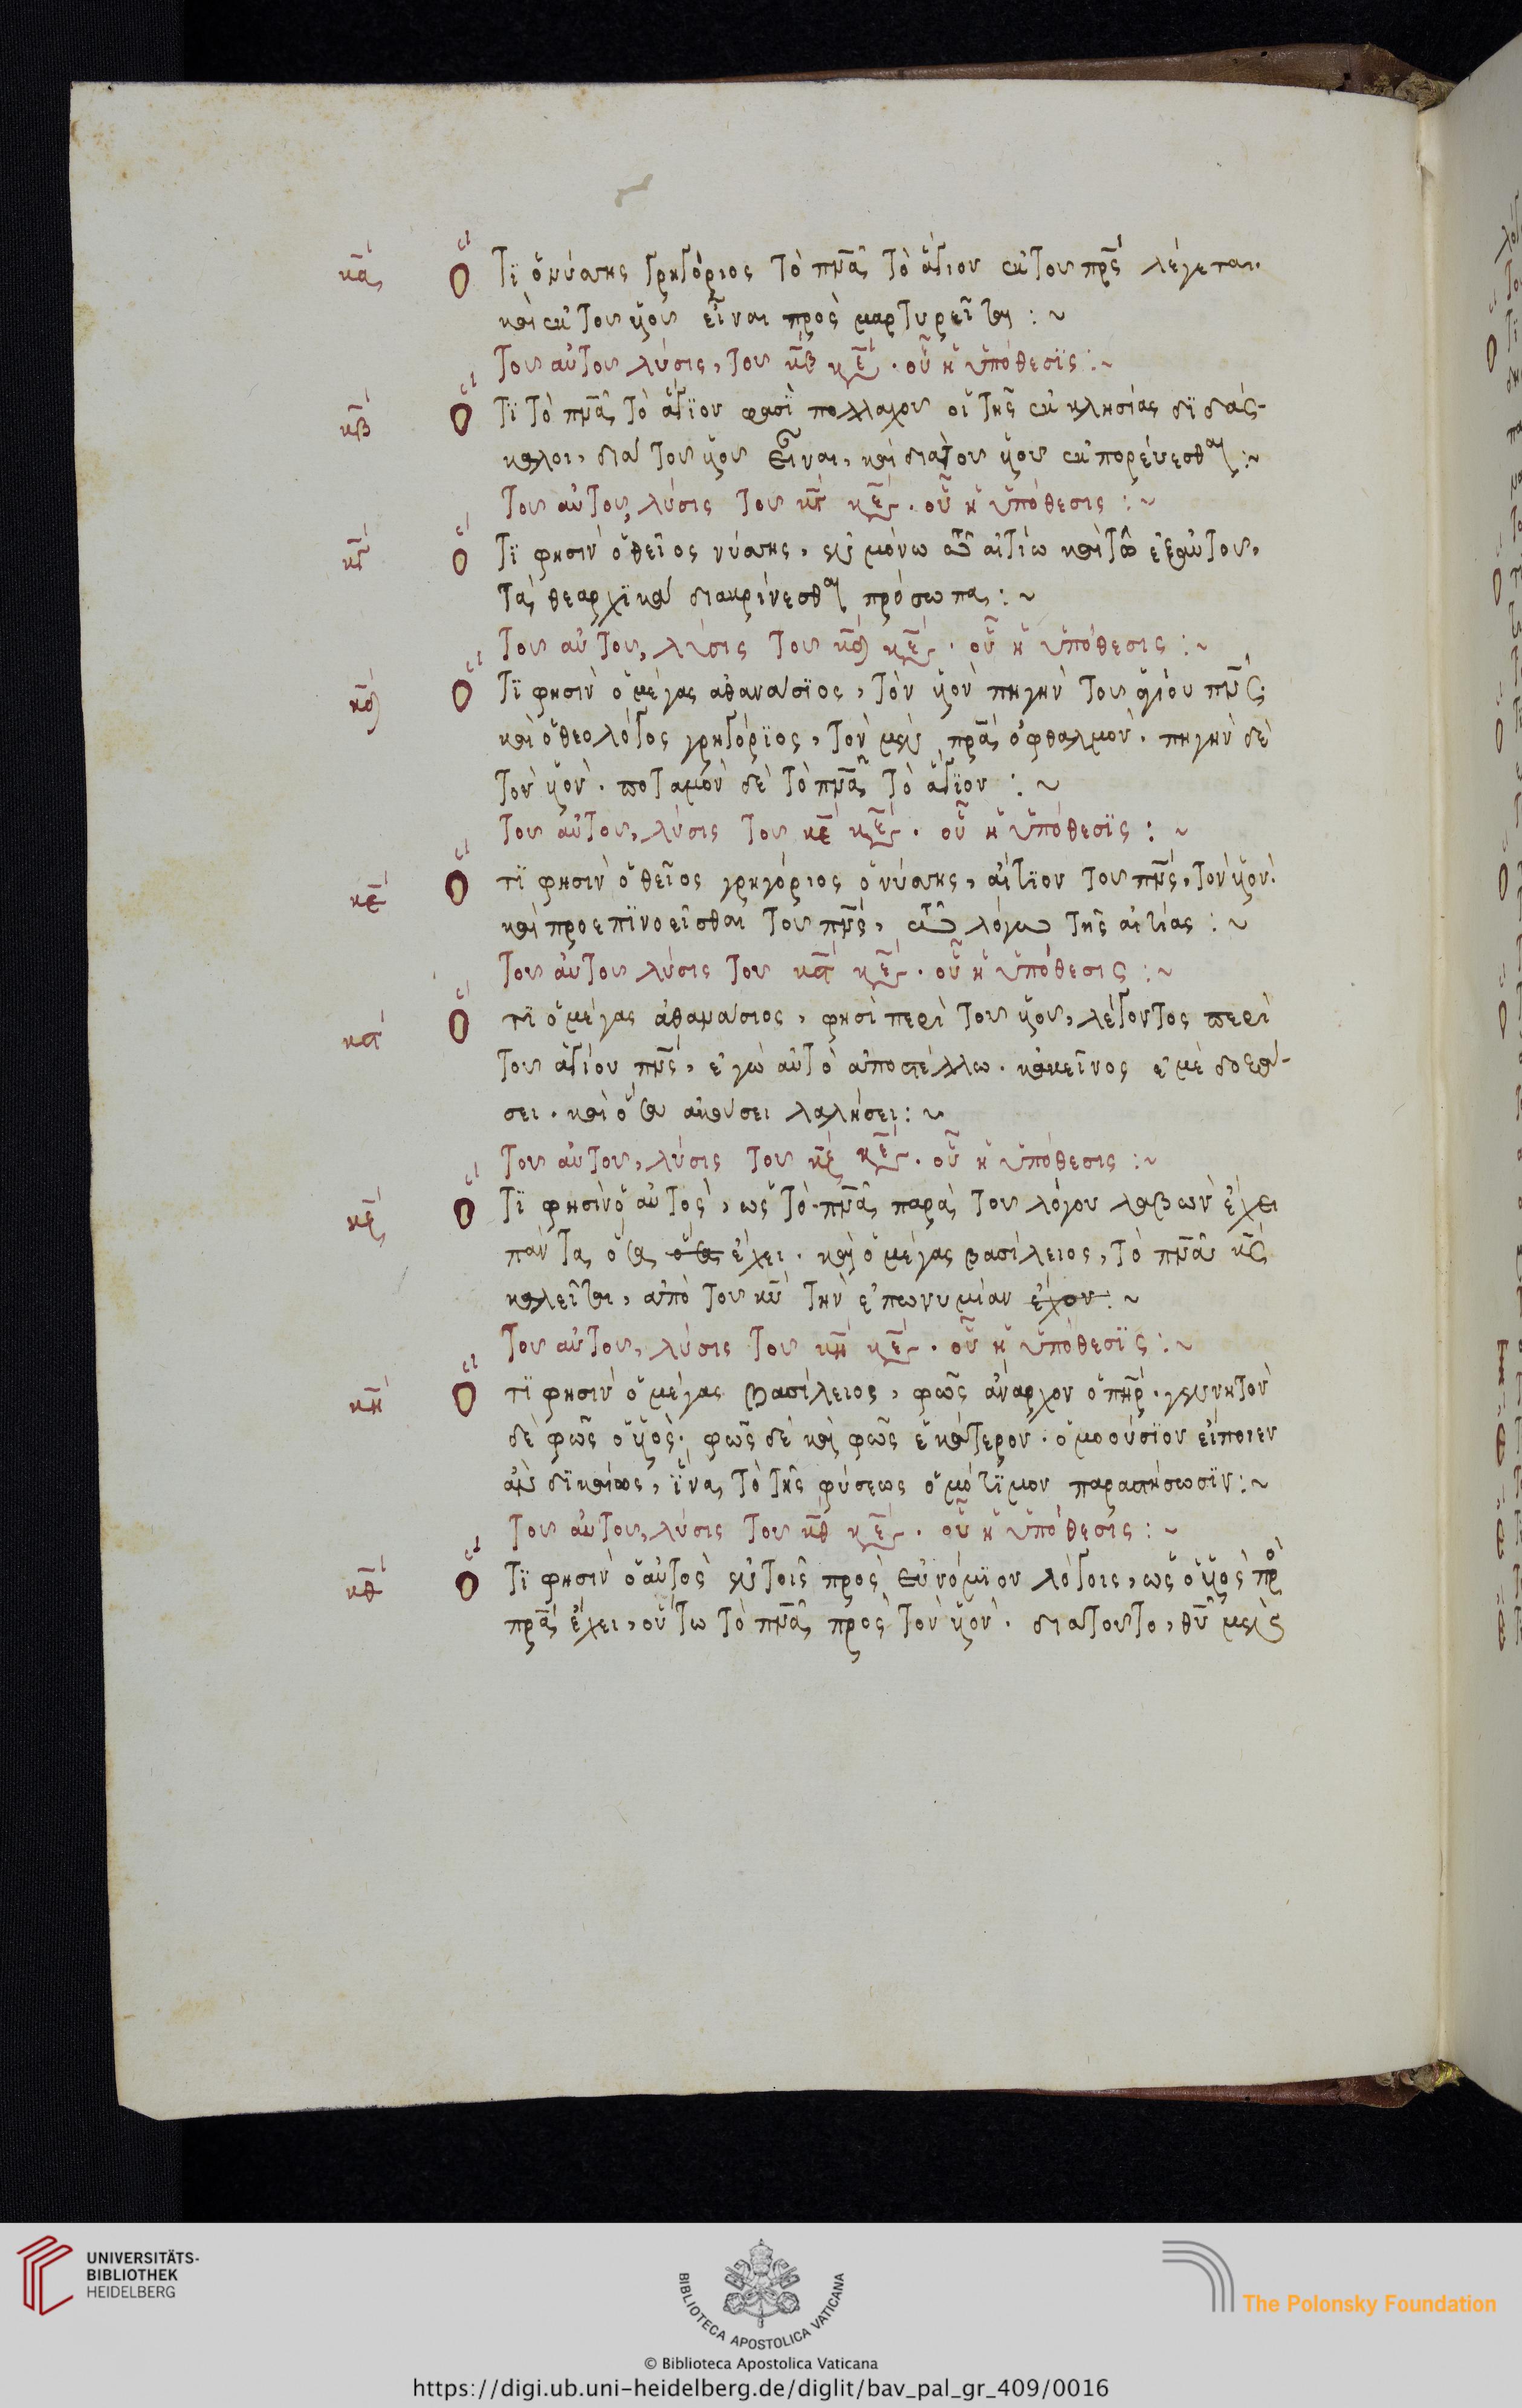 κα´ Ὅτι ὁ νύσσης Γρηγόριος τὸ πνᾶ τὸ ἅγιον ἐκ τοῦ πρς λέγεται.
καὶ ἐκ τοῦ υἱοῦ εἶναι προσμαρτυρεῖται :~
Τοῦ αὐτοῦ λύσις, τοῦ κβ κε. οὗ ἡ ὑπόθεσϊς :~
κβ´ Ὅτϊ τὸ πνᾶ τὸ ἅγϊον φασὶ πολλαχοῦ οἱ τῆς ἐκκλησίας δϊδάσ-
καλοι, διὰ τοῦ υἱοῦ εἶναι, καὶ διὰ τοῦ υἱοῦ ἐκπορεύεσθαι :~
Τοῦ αὐτοῦ, λύσις τοῦ κγ κε. οὗ ἡ ὑπόθεσις :~
κγ´ Ὅτϊ φησὶν ὁ θεῖος νύσσης, ἐν μόνω τῶ αἰτίω καὶ τῶ ἐξ αὐτοῦ,
τὰ θεαρχϊκὰ διακρίνεσθαι πρόσωπα :~
Τοῦ αὐτοῦ, λύσις τοῦ κδ κε. οὗ ἡ ὑπόθεσις :~
κδ´ Ὅτϊ φησὶν ὁ μέγας ἀθανάσϊος, τὸν υἱὸν πηγὴν τοῦ ἁγίου πνς
καὶ ὁ θεολόγος γρηγόρϊος, τὸν μὲν πρα ὀφθαλμὸν. πηγὴν δὲ
τὸν υἱὸν. ποταμὸν δὲ τὸ πνᾶ τὸ ἅγϊον :~
Τοῦ αὐτοῦ, λύσις τοῦ κε κε. οὗ ἡ ὑπόθεσϊς :~
κε´ Ὅτϊ φησὶν ὁ θεῖος γρηγόριος ὁ νύσσης, αἴτϊον τοῦ πνς, τὸν υἱὸν.
καὶ προεπϊνοεῖσθαι τοῦ πνς, τῶ λόγω τῆς αἰτίας :~
Τοῦ αὐτοῦ λύσις τοῦ κϛ κε. οὗ ἡ ὑπόθεσις :~
κϛ´ Ὅτϊ ὁ μέγας ἀθανάσιος, φησὶ περὶ τοῦ υἱοῦ, λέγοντος περὶ
τοῦ ἁγίου πνς, ἐγὼ αὐτὸ ἀποστέλλω. κἀκεῖνος ἐμὲ δοξά-
σει. καὶ ὅσα ἀκούσει λαλήσει :~
Τοῦ αὐτοῦ, λύσις τοῦ κζ κε. οὗ ἡ ὑπόθεσις :~
κζ´ Ὅτϊ φησὶν ὁ αὐτὸς, ὡς τὸ πνᾶ παρὰ τοῦ λόγου λαβὼν ἔχει
πάντα ὅσα ὅσα ἔχει. καὶ ὁ μέγας βασίλειος, τὸ πνᾶ κς
καλεῖται, ἀπὸ τοῦ κυ τὴν ἐπωνυμίαν ἔχον :~
Τοῦ αὐτοῦ, λύσις τοῦ κη κε. οὗ ἡ ὑπόθεσϊς :~
κη´ Ὅτϊ φησὶν ὁ μέγας βασίλειος, φῶς ἄναρχον ὁ πηρ. γεννητὸν
δὲ φῶς ὁ υἱὸς. φῶς δὲ καὶ φῶς ἑκάτερον. ὁμοούσϊον εἴποιεν
ἂν δϊκαίως, ἵνα τὸ τῆς φύσεως ὁμότϊμον παραστήσωσϊν :~
Τοῦ αὐτοῦ, λύσις τοῦ κθ κε. οὗ ἡ ὑπόθεσίς :~
κθ´ Ὅτϊ φησὶν ὁ αὐτὸς ἐν τοῖς πρὸς εὐνόμϊον λόγοις, ὡς ὁ υἱὸς πρὸ
πρα ἔχει, οὕτω τὸ πνᾶ πρὸς τὸν υἱὸν. διὰ τοῦτο, θῦ μὲν
UNIVERSITÄTS-
BIBLIOTHEK
HEIDELBERG
BIBLIOTECA APOSTOLICA VATICANA
The Polonsky Foundation
© Biblioteca Apostolica Vaticana
https://digi.ub.uni-heidelberg.de/diglit/bav_pal_gr_409/0016